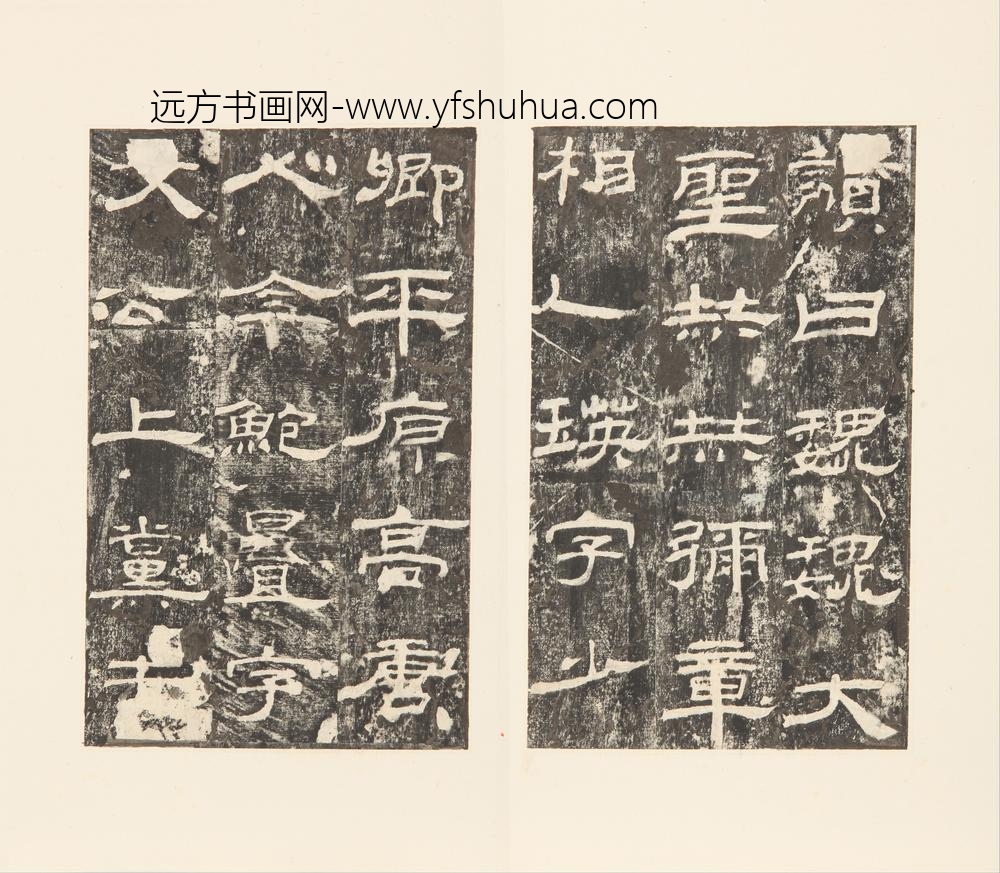 远方书画网-www.yfshuhua.com
讚曰巍巍大
聖赫赫彌章
相乙瑛字少
卿平原高唐
人令鮑疊字
文公上黨屯